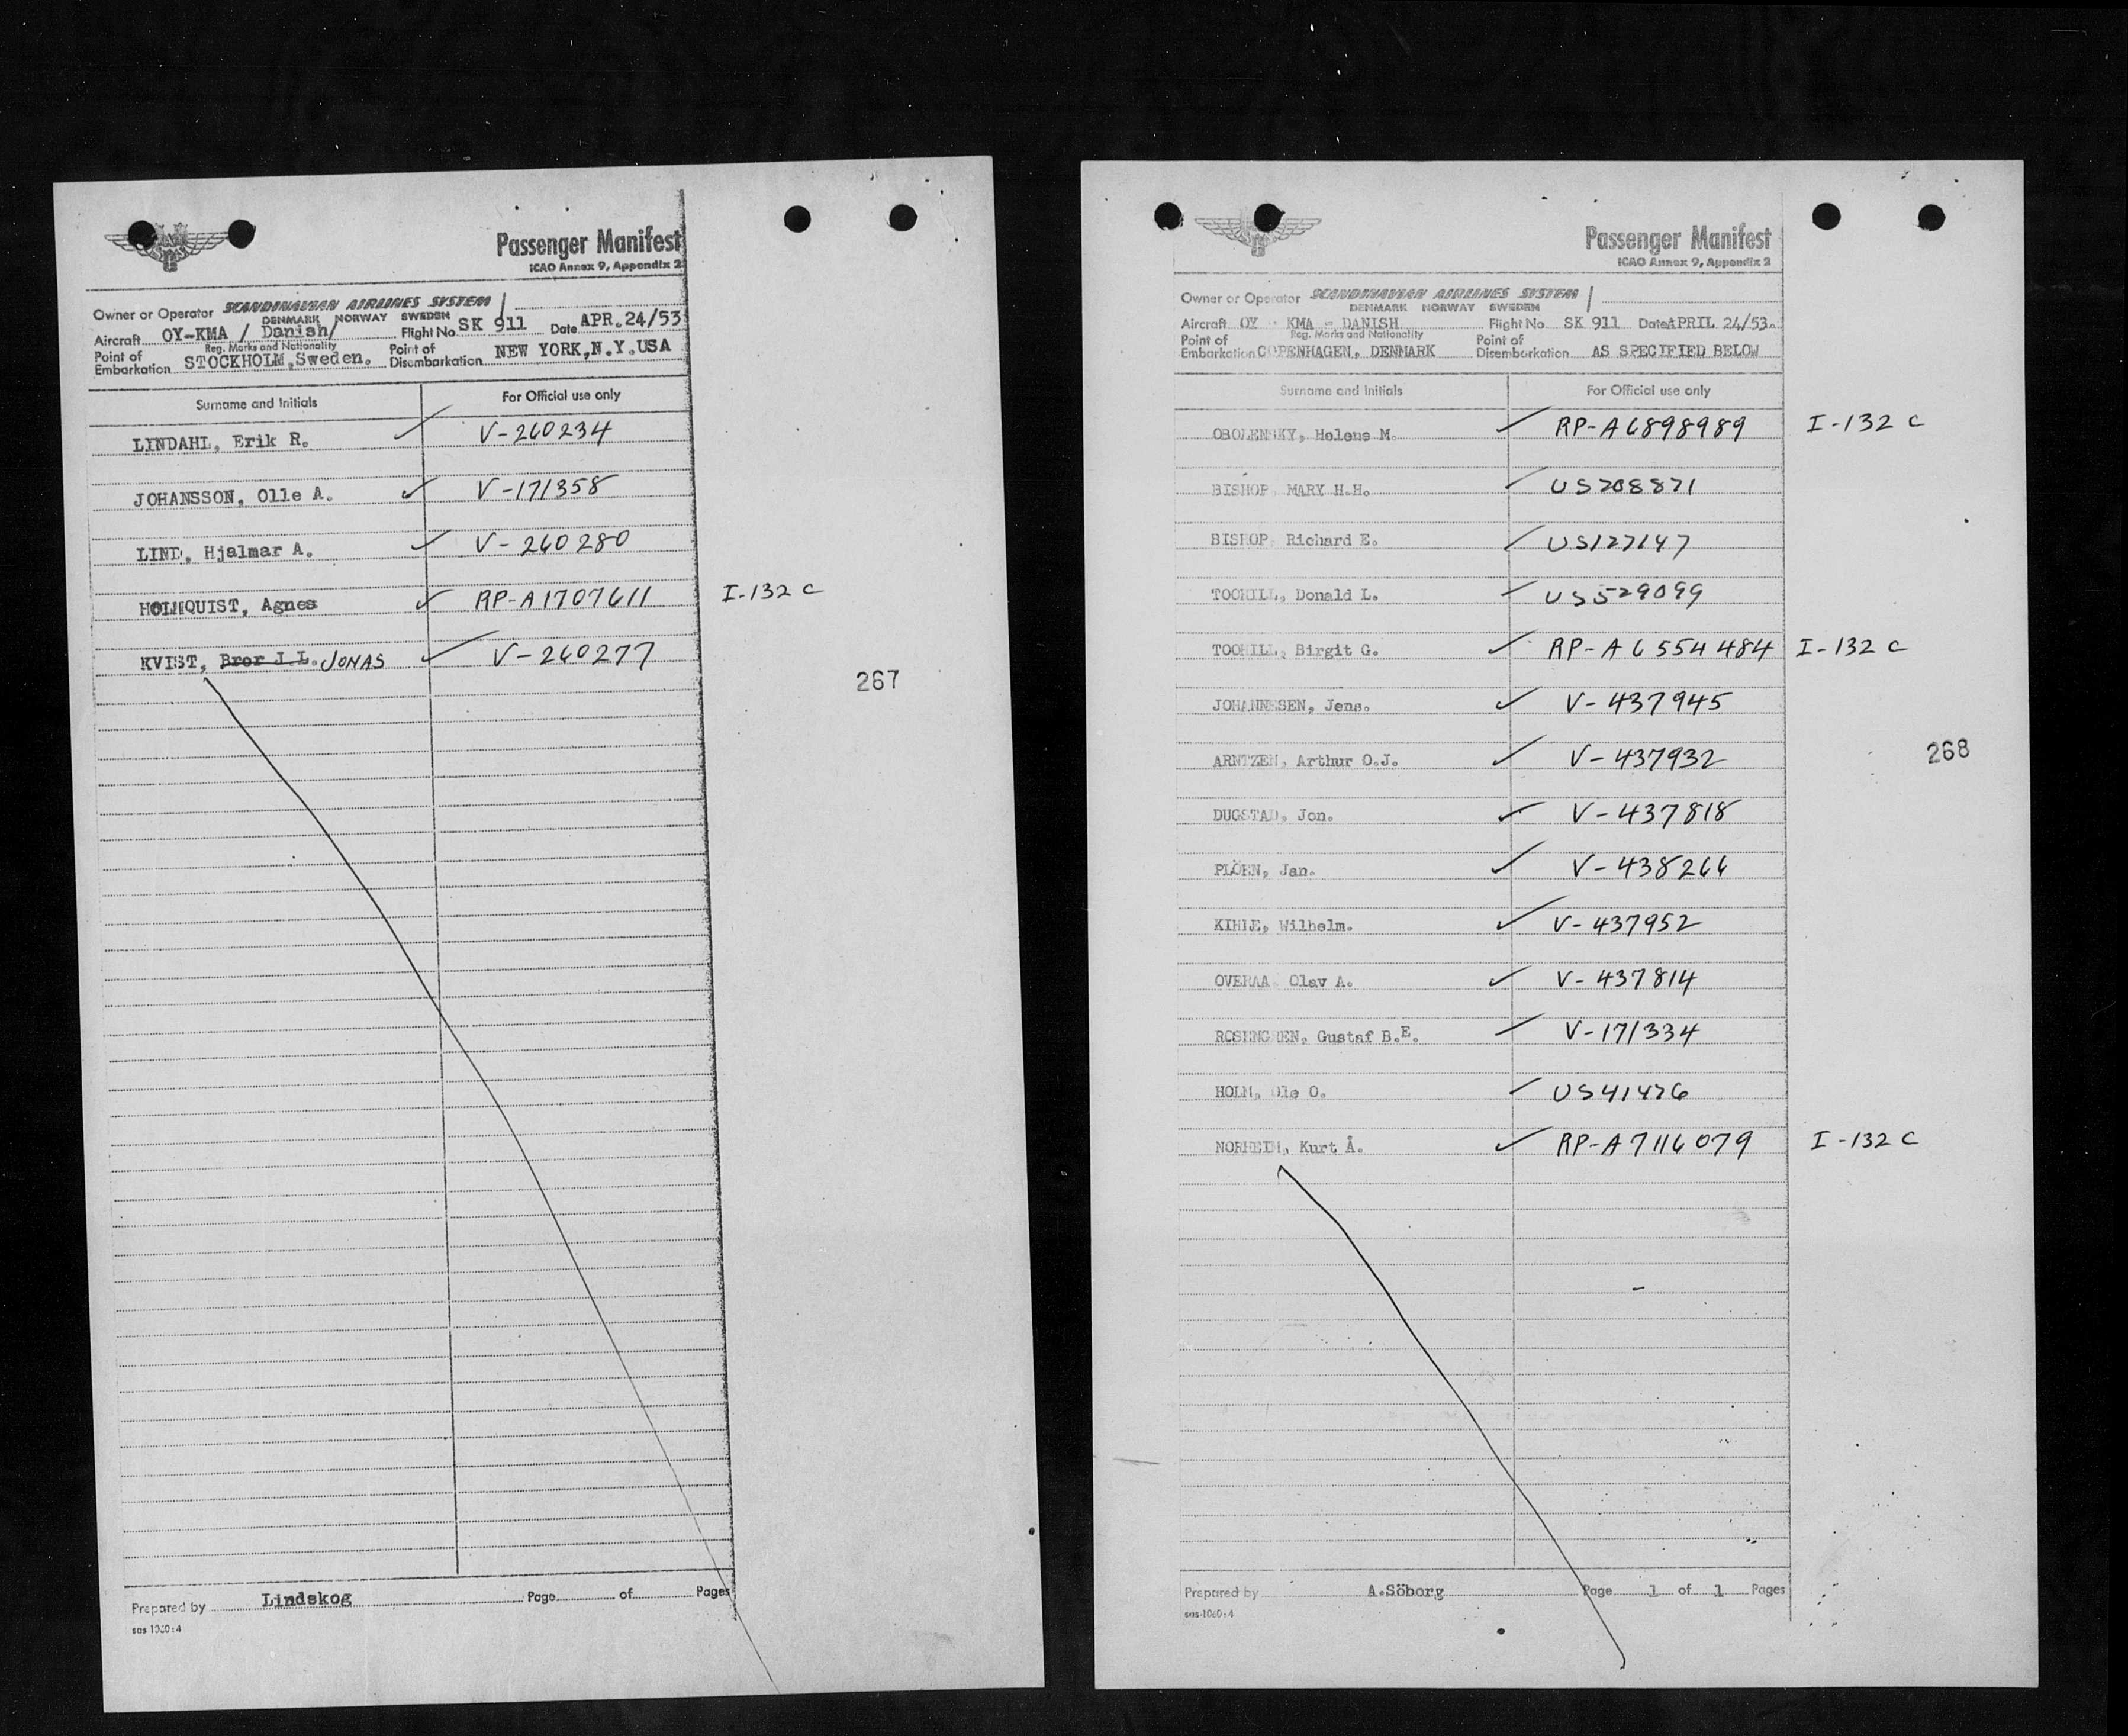 Passenger Manifest
ICAO Annex 9, Appendix 2
Owner or Operator SCANDINAVIAN AIRLINES SYSTEM
DENMARK NORWAY SWEDEN
Aircraft OY-KMA / Danish/ Flight No. SK 911 Date APR.24/53
Reg. Marks and Nationality
Point of Embarkation STOCKHOLM, Sweden. Point of Disembarkation NEW YORK, N.Y. USA
Surname and Initials For Official use only
LINDAHL, Erik R. V-260234
JOHANSSON, Olle A. V-171358
LIND, Hjalmar A. V-260280
HOLMQUIST, Agnes RP-A1707611 I-132 C
KVIST, Bror J.L. JONAS V-260277
267
Prepared by Lindskog Page of Pages
sas 1060:4
Passenger Manifest
ICAO Annex 9, Appendix 2
Owner or Operator SCANDINAVIAN AIRLINES SYSTEM
DENMARK NORWAY SWEDEN
Aircraft OY - KMA - DANISH Flight No SK 911 Date APRIL 24/53.
Reg. Marks and Nationality
Point of Embarkation COPENHAGEN, DENMARK Point of Disembarkation AS SPECIFIED BELOW
Surname and Initials For Official use only
OBOLENSKY, Helene M. RP-A6898989 I-132 C
BISHOP, MARY H.H. US208871
BISHOP, Richard E. US127147
TOOHILL, Donald L. US529099
TOOHILL, Birgit G. RP-A6554484 I-132 C
JOHANNSSEN, Jens. V-437945
ARNTZEN, Arthur O.J. V-437932
268
DUGSTAD, Jon. V-437818
PLÖEN, Jan. V-438266
KIHLE, Wilhelm. V-437952
OVERAA, Olav A. V-437814
ROSENGREN, Gustaf B.E. V-171334
HOLM, Ole O. US41476
NORHEIM, Kurt Å. RP-A7116079 I-132 C
Prepared by A.Söborg Page 1 of 1 Pages
sas-1060:4